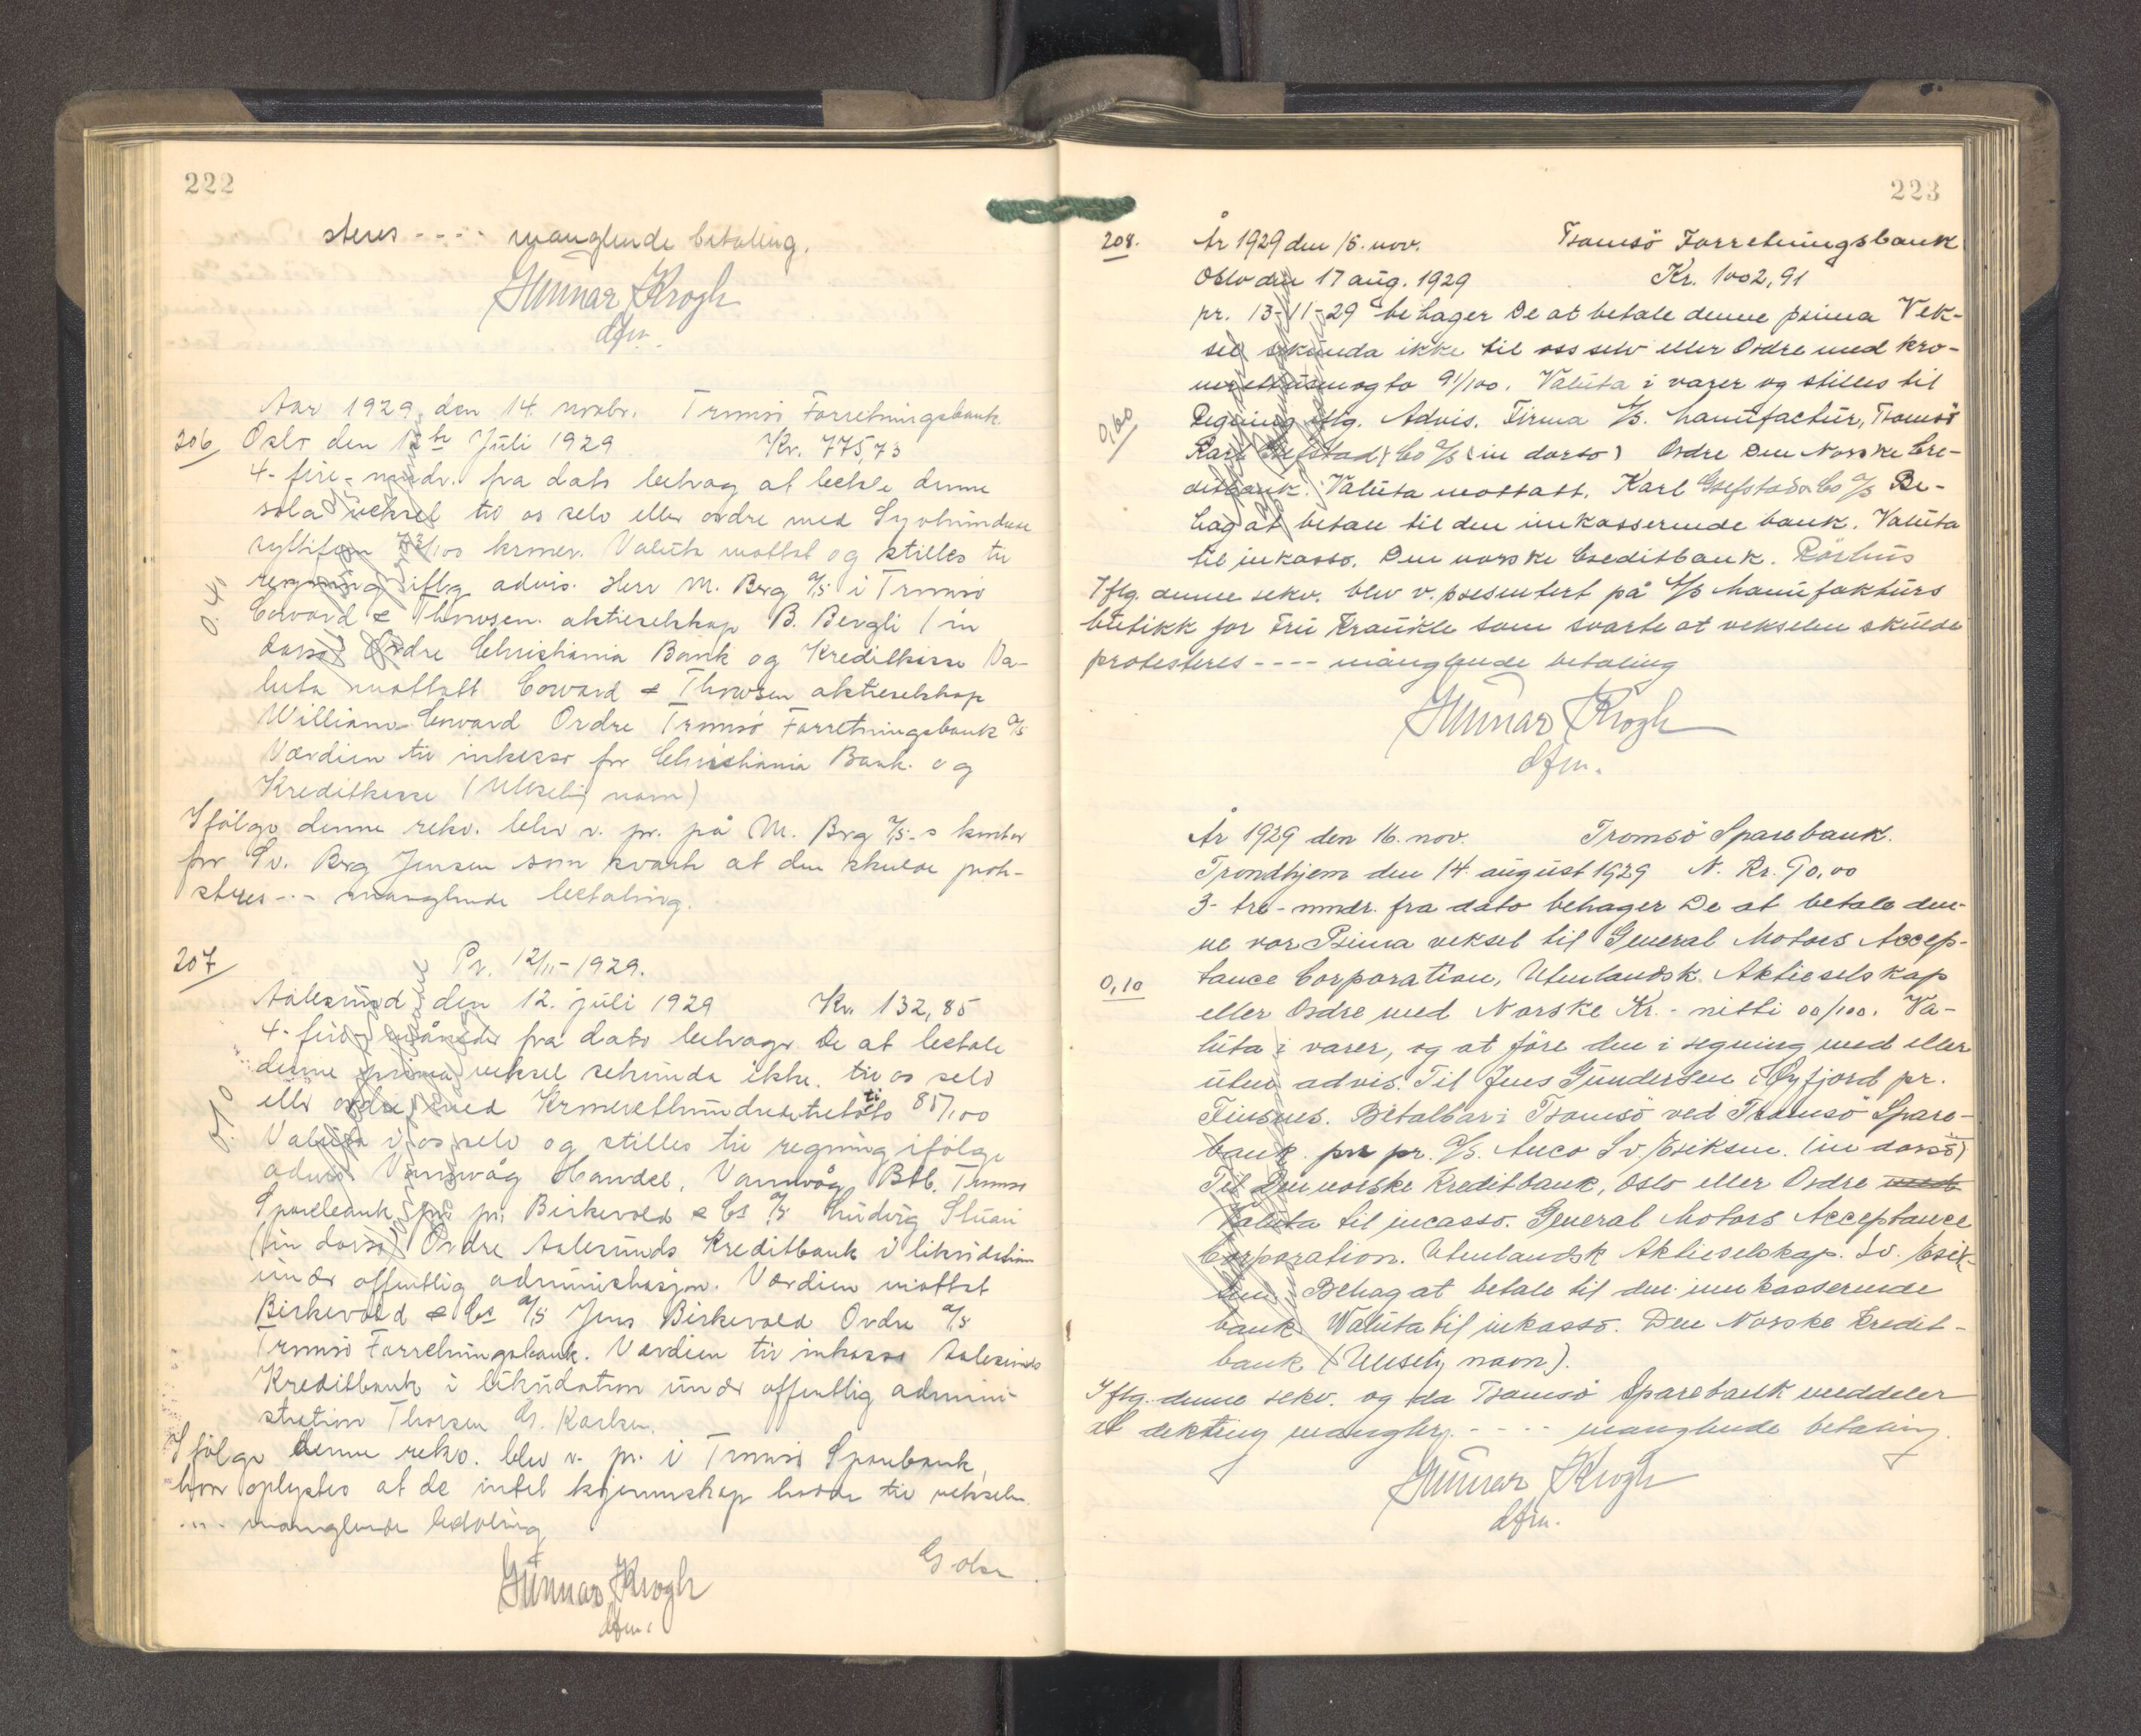 222
steres - - - - manglende betaling.
Gunnar Krogh
dfm.
Aar 1929 den 14. novbr. Tromsö Forretningsbank
206 Oslo den 12te Juli 1929 Kr. 775,73
4 - fire - mndr. fra dato behag at betale denne
sola veksel til os selv eller ordre med Syvhundrede
syttifem 73/100 kroner. Valuta mottat og stilles til
regning iflg advis. Herr M. Berg A/S i Tromsö
0.40
Coward & Thowsen aktieselskap B. Bergli / in
dorso) Ordre Christiania Bank og Kreditkasse Va-
luta mottatt Coward & Thowsen aktieselskap
William Coward Ordre Tromsö Forretningsbank A/S
Værdien til inkasso for Christiania Bank og
Kreditkasse (Uleselig navn)
Ifölge denne rekv. blev v. pr. på M. Brg A/S-s kontor
for Sv. Brg Jensen som svarte at den skulde prote-
steres - - - manglende betaling.
207
Pr. 12/11-1929.
Aalesund den 12. juli 1929 Kr. 132,85
4 - fire - måneder fra dato behager De at betale
denne prima veksel sekunda ikke til os selv
eller ordre med Kroneretthundredetretito 85/100
0.10
Valuta i os selv og stilles til regning ifölge
advis Vannvåg Handel, Vannvåg Btb. Tromsö
Sparebank pr pr. Birkevold & Co A/S Ludvig
(in dorso) Ordre Aalesunds Kreditbank i likvidation
under offentlig administrasjon. Værdien mottat
Birkevold & Co A/S Jens Birkevold Ordre A/S
Tromsö Forretningsbank. Værdien til inkasso Aalesunds
Kreditbank i likvidation under offentlig admini-
stration Thorsen G. Karlsen.
Ifölge denne rekv. blev v. pr. i Tromsö Sparebank,
hvor oplystes at de intet kjennskap hadde til vekselen
- - - manglende betaling
G Olsen
Gunnar Krogh
dfm.
223
208. År 1929 den 15. nov. Tromsö Forretningsbank
Oslo den 17 aug. 1929 Kr. 1002,91
pr. 13-11-29 behager De at betale denne prima Vek-
sel sekunda ikke til oss selv eller Ordre med kro-
nerettusenogto 91/100. Valuta i varer og stilles til
0,60
Regning iflg. Advis. Firma A/S. Manufactur, Tromsö
Karl Gjefstad & Co A/S (in dorso) Ordre Den Norske Cre-
ditbank. Valuta mottatt. Karl Gjefstad & Co A/S Be-
hag at betale til den inkasserende bank. Valuta
til inkasso. Den norske Creditbank. Rörhus
Iflg. denne rekv. blev v. presentert på A/S Manufakturs
butikk for Fru Kraukle som svarte at vekselen skulde
protesteres - - - - manglende betaling
Gunnar Krogh
dfm.
År 1929 den 16. nov. Tromsö Sparebank.
Trondhjem den 14. august 1929 N. Kr. 90,00
3 - tre - mndr. fra dato behager De at betale den-
ne vor Prima veksel til General Motors Accep-
0,10
tance Corporation, Utenlandsk Aktieselskap
eller Ordre med Norske Kr. - nitti 00/100. Va-
luta i varer, og at före den i regning med eller
uten advis. Til Jens Gundersen i Öyfjord pr.
Finsnes. Betalbar i Tromsö ved Tromsö Spare-
bank. pr pr. A/S. Anco Sv. Eriksen. (in dorso)
Til Den norske Kreditbank, Oslo eller Ordre med
Valuta til incasso. General Motors Acceptance
Corporation. Utenlandsk Aktieselskap. Sv. Erik-
sen. Behag at betale til den innkasserende
bank Valuta til inkasso. Den Norske Kredit-
bank (Uleselig navn).
Iflg. denne rekv. og da Tromsö Sparebank meddeler
at dekning mangler. - - - - manglende betaling.
Gunnar Krogh
dfm.